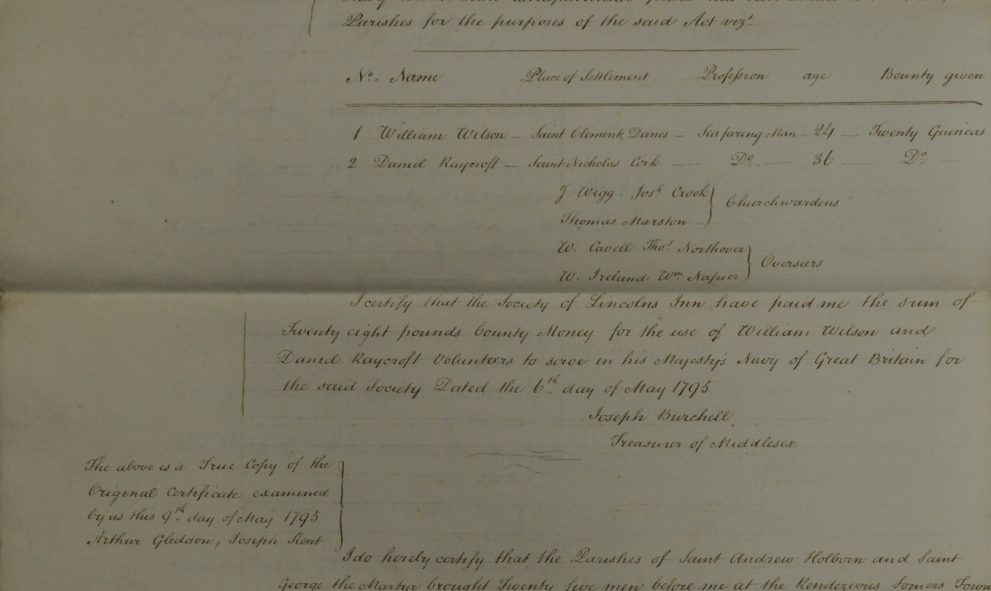 Parishes for the purposes of the said Act vizt.
No. Name Place of Settlement Profession age Bounty given
1 William Wilson — Saint Clement Danes — Seafaring Man — 24 — Twenty Guineas
2 Daniel Raycroft — Saint Nicholas Cork — Do — 36 — Do —
J Wigg Josh Crook
Thomas Marston —
Churchwardens
W. Cavell Thos. Northover
W. Ireland Wm Napier
Overseers
I certify that the Society of Lincolns Inn have paid me the sum of
Twenty eight pounds bounty Money for the use of William Wilson and
Daniel Raycroft Volunteers to serve in his Majestys Navy of Great Britain for
the said Society Dated the 6th day of May 1795
Joseph Burchell
Treasurer of Middlesex
The above is a True Copy of the
Original Certificate examined
by us this 9th day of May 1795
Arthur Gleddon, Joseph Kent
I do hereby certify that the Parishes of Saint Andrew Holborn and Saint
George the Martyr brought Twenty five men before me at the Rendezvous Somers Town